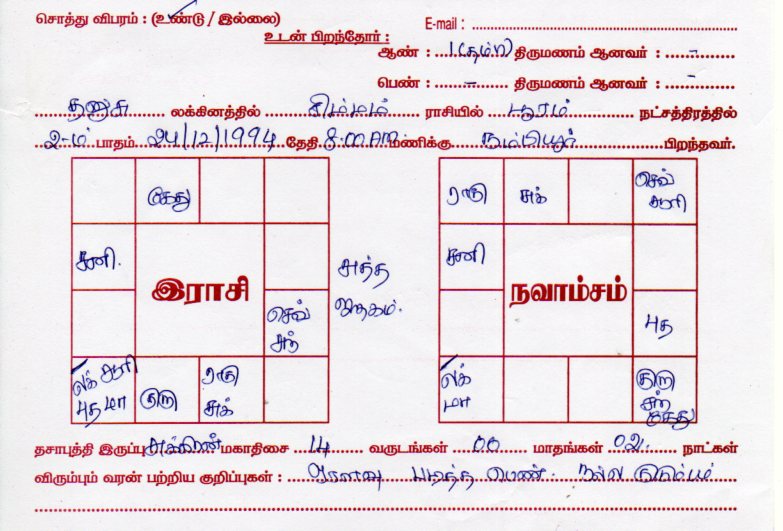 சொத்து விபரம் : (உண்டு / இல்லை)
E-mail :
உடன் பிறந்தோர் :
ஆண் : 1 (தம்பி) திருமணம் ஆனவர் : -
பெண் : - திருமணம் ஆனவர் : -
தனுசு லக்கினத்தில் சிம்மம் ராசியில் பூரம் நட்சத்திரத்தில்
2-ம் பாதம் 24/12/1994 தேதி 8.00 AM மணிக்கு நம்பியூர் பிறந்தவர்.
கேது
சனி.
இராசி
செவ்
சந்
லக் சூரி
புத மா
குரு
ராகு
சுக்
சுத்த
ஜாதகம்.
ராகு
சுக்
செவ்
சூரி
சனி
நவாம்சம்
புத
லக்
மா
குரு
சந்
கேது
தசாபுத்தி இருப்பு சுக்கிரன் மகாதிசை 14 வருடங்கள் 00 மாதங்கள் 02 நாட்கள்
விரும்பும் வரன் பற்றிய குறிப்புகள் : ஓரளவு படித்த பெண். நல்ல குடும்பம்